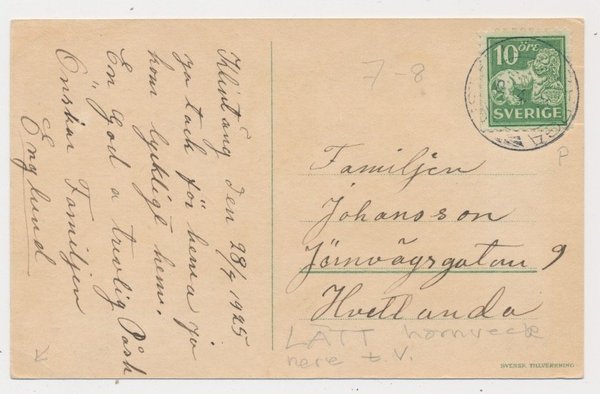 Klintäng den 28/7 1925
ja tack för hema ja
kom lyckligt hem.
En God a trevlig Påsk
Önskar Familjen
Englund
7-8
10 ÖRE
SVERIGE
Familjen
Johansson
Järnvägsgatan 9
Hvetlanda
LÄTT hörnveck
nere t.v.
P
SVENSK TILLVERKNING